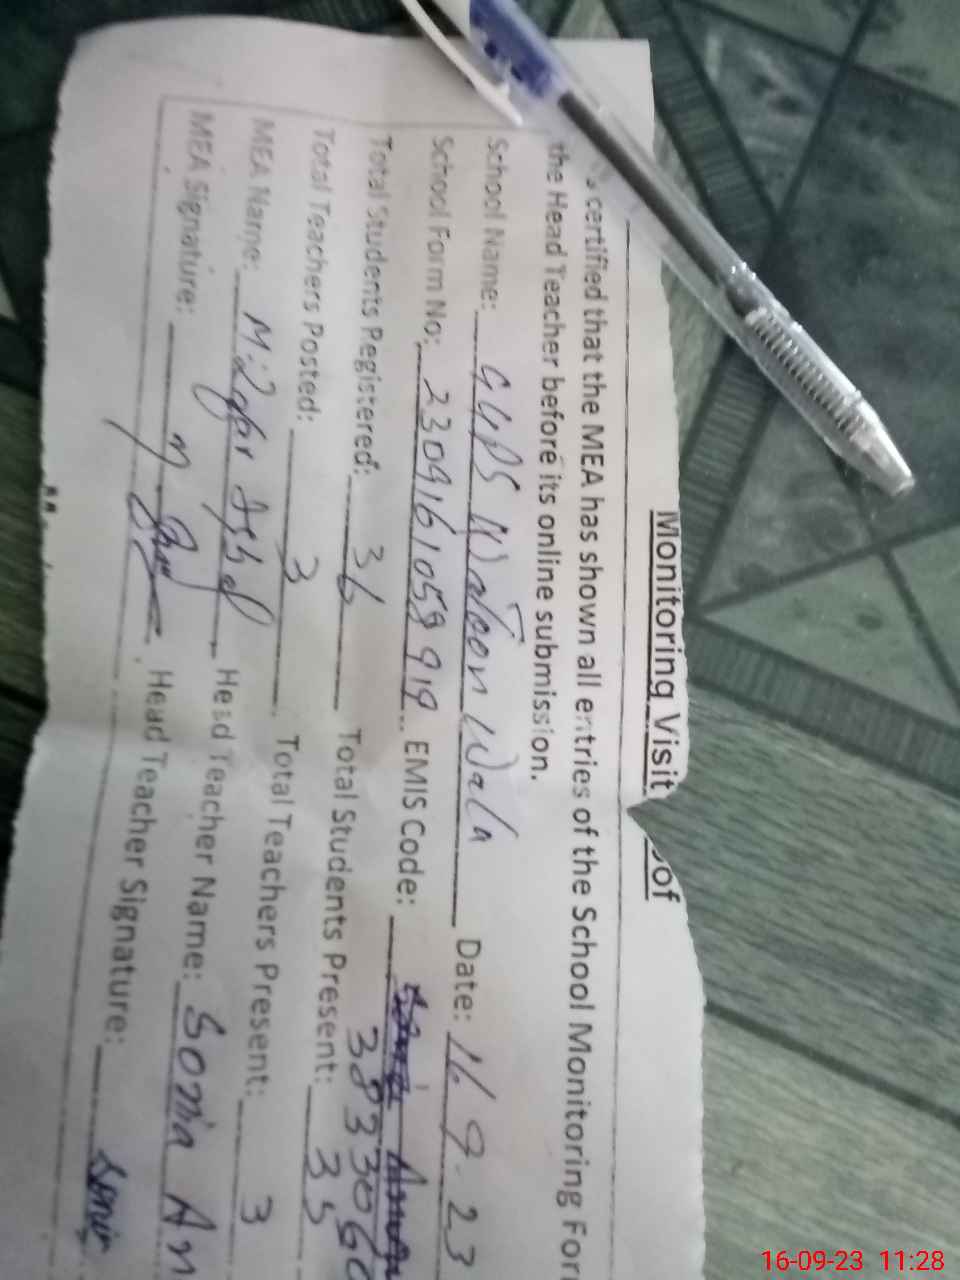 Monitoring Visit
certified that the MEA has shown all entries of the School Monitoring For
the Head Teacher before its online submission.
School Name: GGPS Watoon Wala Date: 16.9.23
School Form No: 23091610589919 EMIS Code: 3833060
Total Students Registered: 36 Total Students Present: 35
Total Teachers Posted: 3 Total Teachers Present: 3
MEA Name: M. Head Teacher Name: Sonia
MEA Signature: Head Teacher Signature: Sonia
16-09-23 11:28